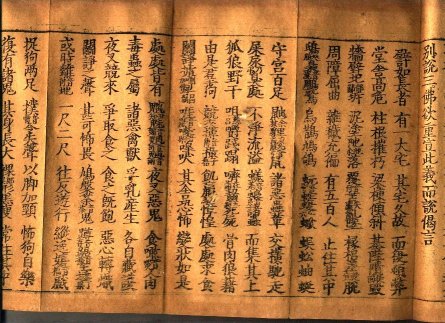 別說三佛欲重宣此義而說偈言
譬如長者 有一大宅 其宅久故 而復頓弊
堂舍高危 柱根摧朽 梁棟傾斜 基陛隤毀
牆壁圮坼 泥塗褫落 覆苫亂墜 椽梠差脫
周障屈曲 雜穢充遍 有五百人 止住其中
鵄梟鵰鷲 烏鵲鳩鴿 蚖蛇蝮蠍 蜈蚣蚰蜒
守宮百足 狖狸鼷鼠 諸惡蟲輩 交橫馳走
屎尿臭處 不淨流溢 蜣蜋諸蟲 而集其上
狐狼野干 咀嚼踐蹋 死屍 骨肉狼藉
由是羣狗 競來搏撮 飢羸慞惶 處處求食
鬪諍 嘊喍嘷吠 其舍恐怖 變狀如是
處處皆有 魑魅魍魎 夜叉惡鬼 食噉人肉
毒蟲之屬 諸惡禽獸 孚乳產生 各自藏護
夜叉競來 爭取食之 食之既飽 惡心轉熾
鬪諍之聲 甚可怖畏 鳩槃荼鬼 蹲踞土埵
或時離地 一尺二尺 往返遊行 縱逸嬉戲
捉狗兩足 撲令失聲 以脚加頸 怖狗自樂
復有諸鬼 其身長大 裸形黑瘦 常住其中